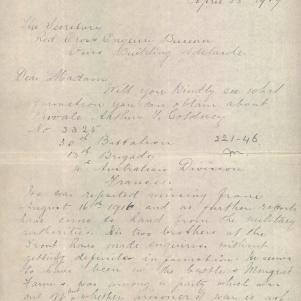 April 1917
The Secretary
Red Cross Enquiry Bureau
Building Adelaide
Dear Madam
Will you kindly see what
information you can obtain about
Private Arthur
No 3325
50th Battalion 221-46
13th Brigade
4th Australian Division
France
He was reported missing from
August 16th 1916 and as no further reports
has come to hand from the military
authorities. His two brothers at the
Front have made enquiries without
getting definite information. He seems
to have been in the battle Mouquet
Farm & was among a party which was
out & whether prisoner of war is not